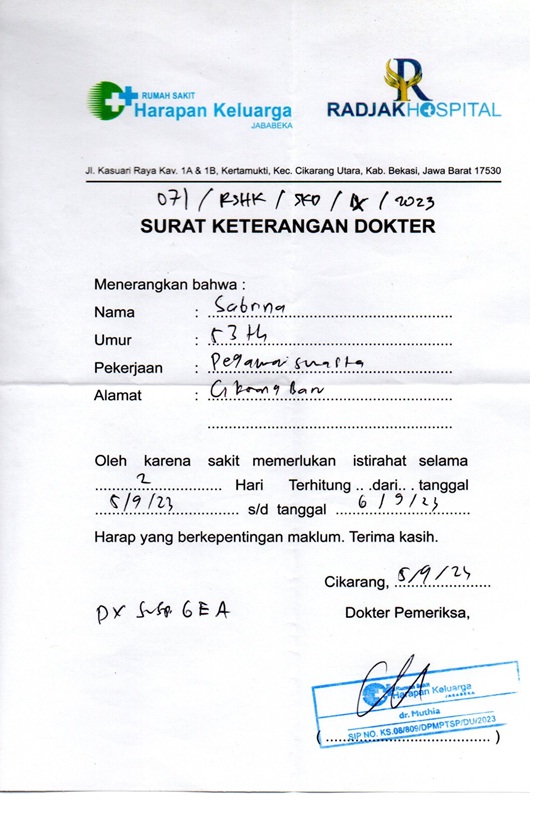 RUMAH SAKIT
Harapan Keluarga
JABABEKA
RADJAK HOSPITAL
Jl. Kasuari Raya Kav. 1A & 1B, Kertamukti, Kec. Cikarang Utara, Kab. Bekasi, Jawa Barat 17530
071 / RSHK / SKD / IX / 2023
SURAT KETERANGAN DOKTER
Menerangkan bahwa :
Nama : Sabrina
Umur : 53 th
Pekerjaan : Pegawai swasta
Alamat : Cikarang Baru
Oleh karena sakit memerlukan istirahat selama
2 Hari Terhitung .. .dari.. . tanggal
5/9/23 s/d tanggal 6/9/23
Harap yang berkepentingan maklum. Terima kasih.
Cikarang, 5/9/23
DX susp GEA
Dokter Pemeriksa,
Rumah Sakit
Harapan Keluarga
JABABEKA
dr. Muthia
SIP NO. KS.08/809/DPMPTSP/DU/2023